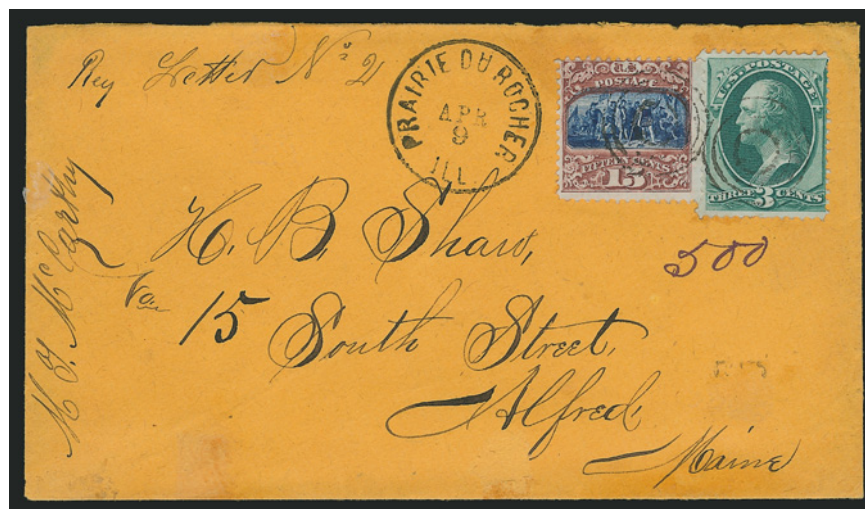 Reg Letter No 21
PRAIRIE DU ROCHER
APR
9
ILL.
U.S.
POSTAGE
FIFTEEN CENTS
15
U.S. POSTAGE
THREE 3 CENTS
H. B. Shaw,
500
15
South Street,
Alfred,
Maine
M. J. McCarthy